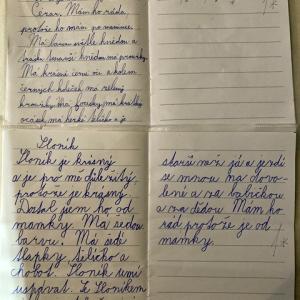 Cézar. Mám ho ráda,
protože ho mám po mamince.
Má barvu světle hnědou a
hnědou. Má proužky.
Má krásné černé oči a kolem
černých teček má zelený
kroužky. Má fousky, má krátký
ocásek, má hezké tělíčko a je
Sloník
Sloník je krásný
a je pro mě důležitý,
protože je krásný.
Dostal jsem ho od
mamky. Má šedou
barvu. Má šedé
tlapky, tělíčko a
chobot. Sloník umí
uspávat. Se Sloníkem
starší než já a jezdí
se mnou na dovo-
lené a na babičkou
a za dědou. Mám ho
rád protože je od
mamky.
1*